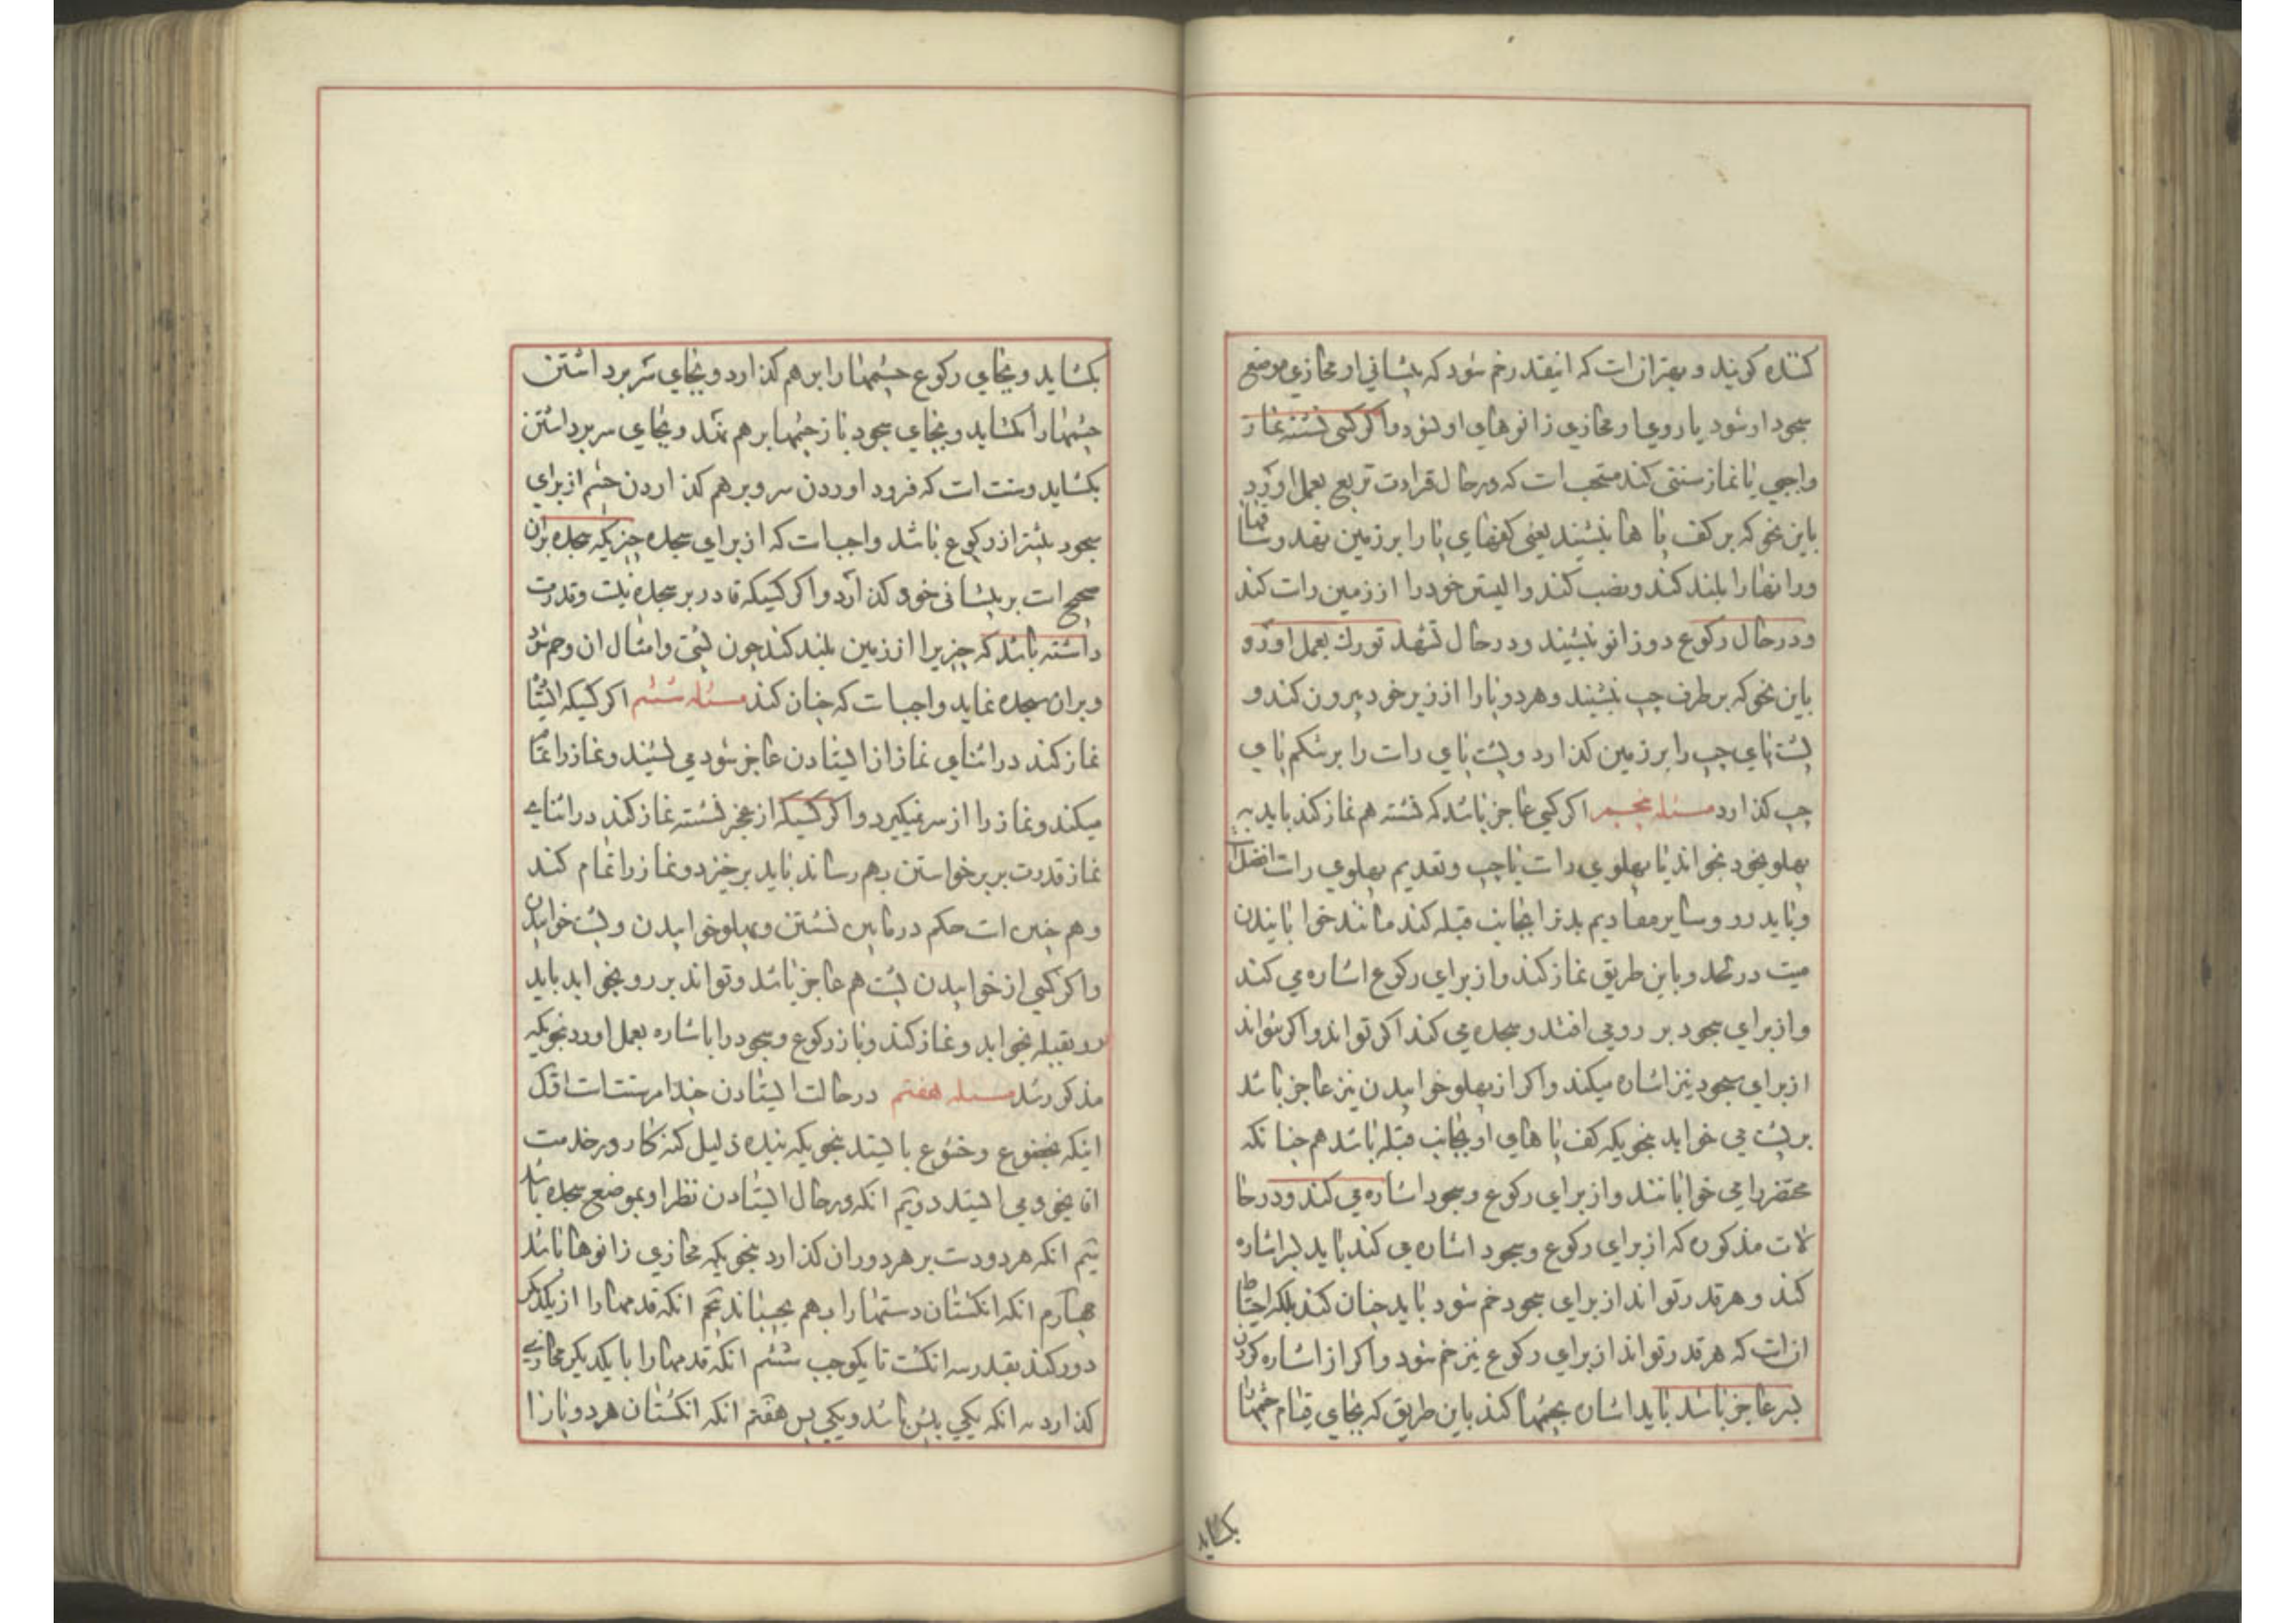 کننده کویند و بهتر ان است که انقدر خم شود که پیشانی او محاذی موضع
سجود او شود یا روی او محاذی زانوهای او شود و اکر کسی نشسته نماز
واجبی یا نماز سنتی کند مستحب است که در حال قرائت تربع بعمل اورد
باین نحو که بر کف پا ها بنشیند یعنی کفهای پا را بر زمین نهد و ساقها
و رانها را بلند کند و نصب کند و الیتین خود را از زمین راست کند
و در حال رکوع دو زانو بنشیند و در حال تشهد تورك بعمل اورد و
باین نحو که بر طرف چپ بنشیند و هر دو پا را از زیر خود بیرون کند و
پشت پای چپ را بر زمین کذارد و پشت پای راست را بر شکم پای
چپ کذارد مسئله پنجم اکر کسی عاجز باشد که نشسته هم نماز کند باید به
پهلو بخوابد یا پهلوی راست یا چپ و تقدیم پهلوی راست افضل است
و باید رو و سایر مقادیم بدنرا بجانب قبله کند مانند خوابانیدن
میت در لحد و باین طریق نماز کند و از برای رکوع اشاره می کند
و از برای سجود بر روی افتد و سجده می کند اکر تواند و اکر نتواند
از برای سجود نیز اشاره میکند و اکر از پهلو خوابیدن نیز عاجز باشد
بر پشت می خوابد بنحویکه کف پا های او بجانب قبله باشد هم چنانکه
محتضر را می خوابانند و از برای رکوع و سجود اشاره می کند و در حا
لات مذکوره که از برای رکوع و سجود اشاره می کند باید بسر اشاره
کند و هر قدر تواند از برای سجود خم شود باید چنان کند بلکه احتیاط
ان است که هر قدر تواند از برای رکوع نیز خم شود و اکر از اشاره کردن
بسر عاجز باشد باید اشاره بچشمها کند باین طریق که بجای قیام چشمها
بکشاید
بکشاید و بجای رکوع چشمها را بر هم کذارد و بجای سر برداشتن
چشمها را بکشاید و بجای سجود باز چشمها بر هم نهد و بجای سر برداشتن
بکشاید و سنت است که فرود اوردن سر و بر هم کذاردن چشم از برای
سجود بیشتر از رکوع باشد و واجب است که از برای سجده چیزیکه سجده بر ان
صحیح است بر پیشانی خود کذارد و اکر کسیکه قادر بر سجده نیست و قدرت
داشته باشد که چیزیرا از زمین بلند کند چون پشتی و امثال ان و خم شود
و بر ان سجده نماید واجب است که چنان کند مسئله ششم اکر کسیکه ایستاده
نماز کند در اثنای نماز از ایستادن عاجز شود می نشیند و نماز را تمام
میکند و نماز را از سر نمیکیرد و اکر کسیکه از عجز نشسته نماز کند در اثنای
نماز قدرت بر برخواستن بهم رساند باید برخیزد و نماز را تمام کند
و هم چنین است حکم در مابین نشستن و پهلو خوابیدن و پشت خوابیدن
و اکر کسی از خوابیدن پشت هم عاجز باشد و تواند بر رو بخوابد باید
رو بقبله بخوابد و نماز کند و باز رکوع و سجود را باشاره بعمل اورد بنحویکه
مذکور شد مسئله هفتم در حالت ایستادن چند امر سنت است اول
اینکه بخضوع و خشوع بایستد بنحویکه بنده ذلیل کنه کار در خدمت
اقای خود می ایستد دویم انکه در حال ایستادن نظر او بموضع سجده باشد
سیم انکه هر دو دست بر هر دو ران کذارد بنحویکه محاذی زانوها باشد
چهارم انکه انکشتان دستها را بهم بچسباند پنجم انکه قدمها را از یکدیکر
دور کند بقدر سه انکشت تا یکوجب ششم انکه قدمها را با یکدیکر محاذی
کذارد نه انکه یکی پیش باشد و یکی پس هفتم انکه انکشتان هر دو پا را